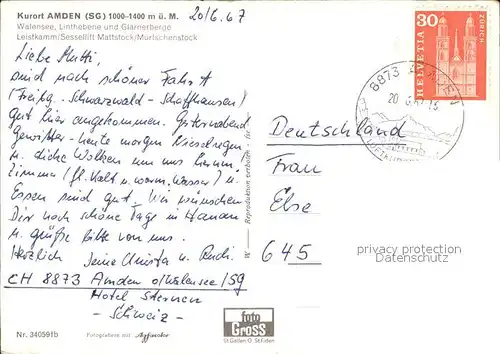 Kurort AMDEN (SG) 1000–1400 m ü. M.
Walensee, Linthebene und Glarnerberge
Leistkamm/Sessellift Mattstock/Murtschenstock
20/6.67
Liebe Mutti,
sind nach schöner Fahrt
(Freibg. - Schwarzwald - Schaffhausen)
gut hier angekommen. Gestern abend
Gewitter - heute morgen Nieselregen
u. dicke Wolken um uns herum.
Zimmer (fl. Kalt u. warm. Wasser) u.
Essen sind gut. Wir wünschen
Dir noch schöne Tage in Hanau
u. grüße bitte von uns.
Herzlich Deine Christa u. Rudi.
CH 8873 Amden o/Walensee/SG
Hotel Sternen
- Schweiz -
Nr. 34059fb
Fotographiere mit Agfacolor
W — Reproduktion verboten
foto
Gross
St. Gallen O St. Fiden
HELVETIA
30
ZÜRICH
8873 AMDEN
20. 6. 67-15
Deutschland
Frau
Else
645
postcards-protected
Watermark Protection